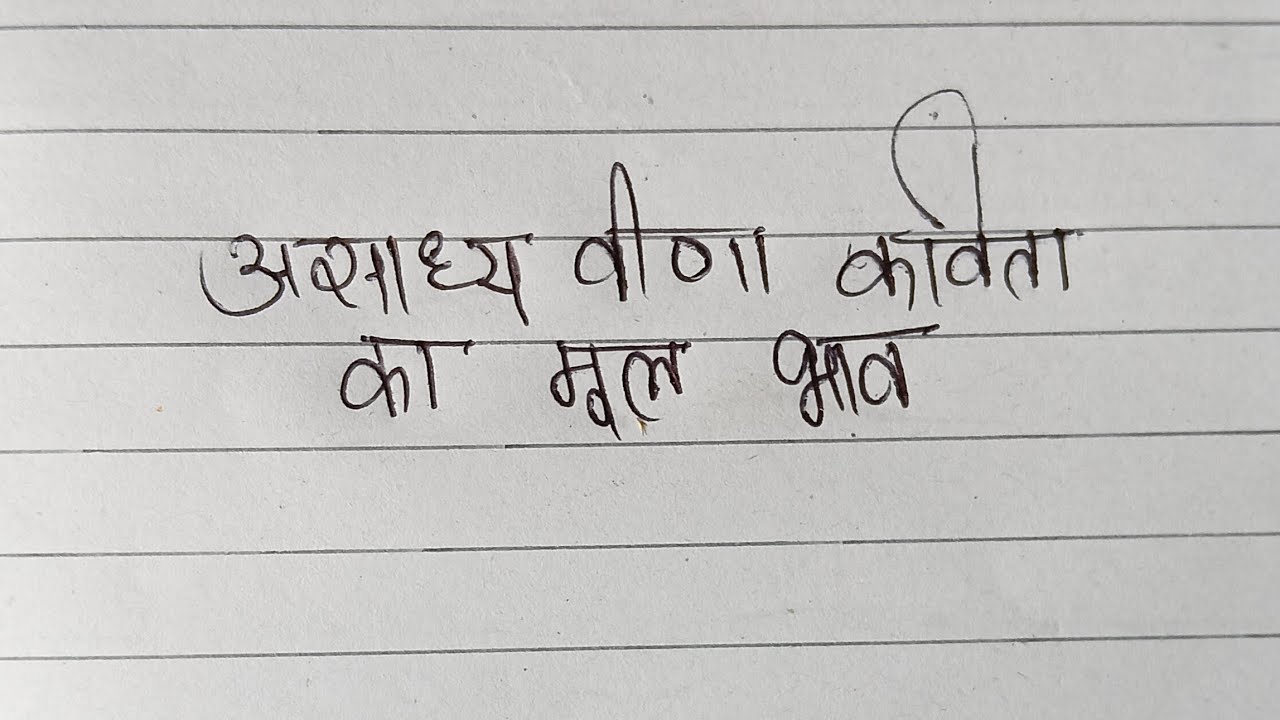 असाध्य वीणा कविता
का मूल भाव